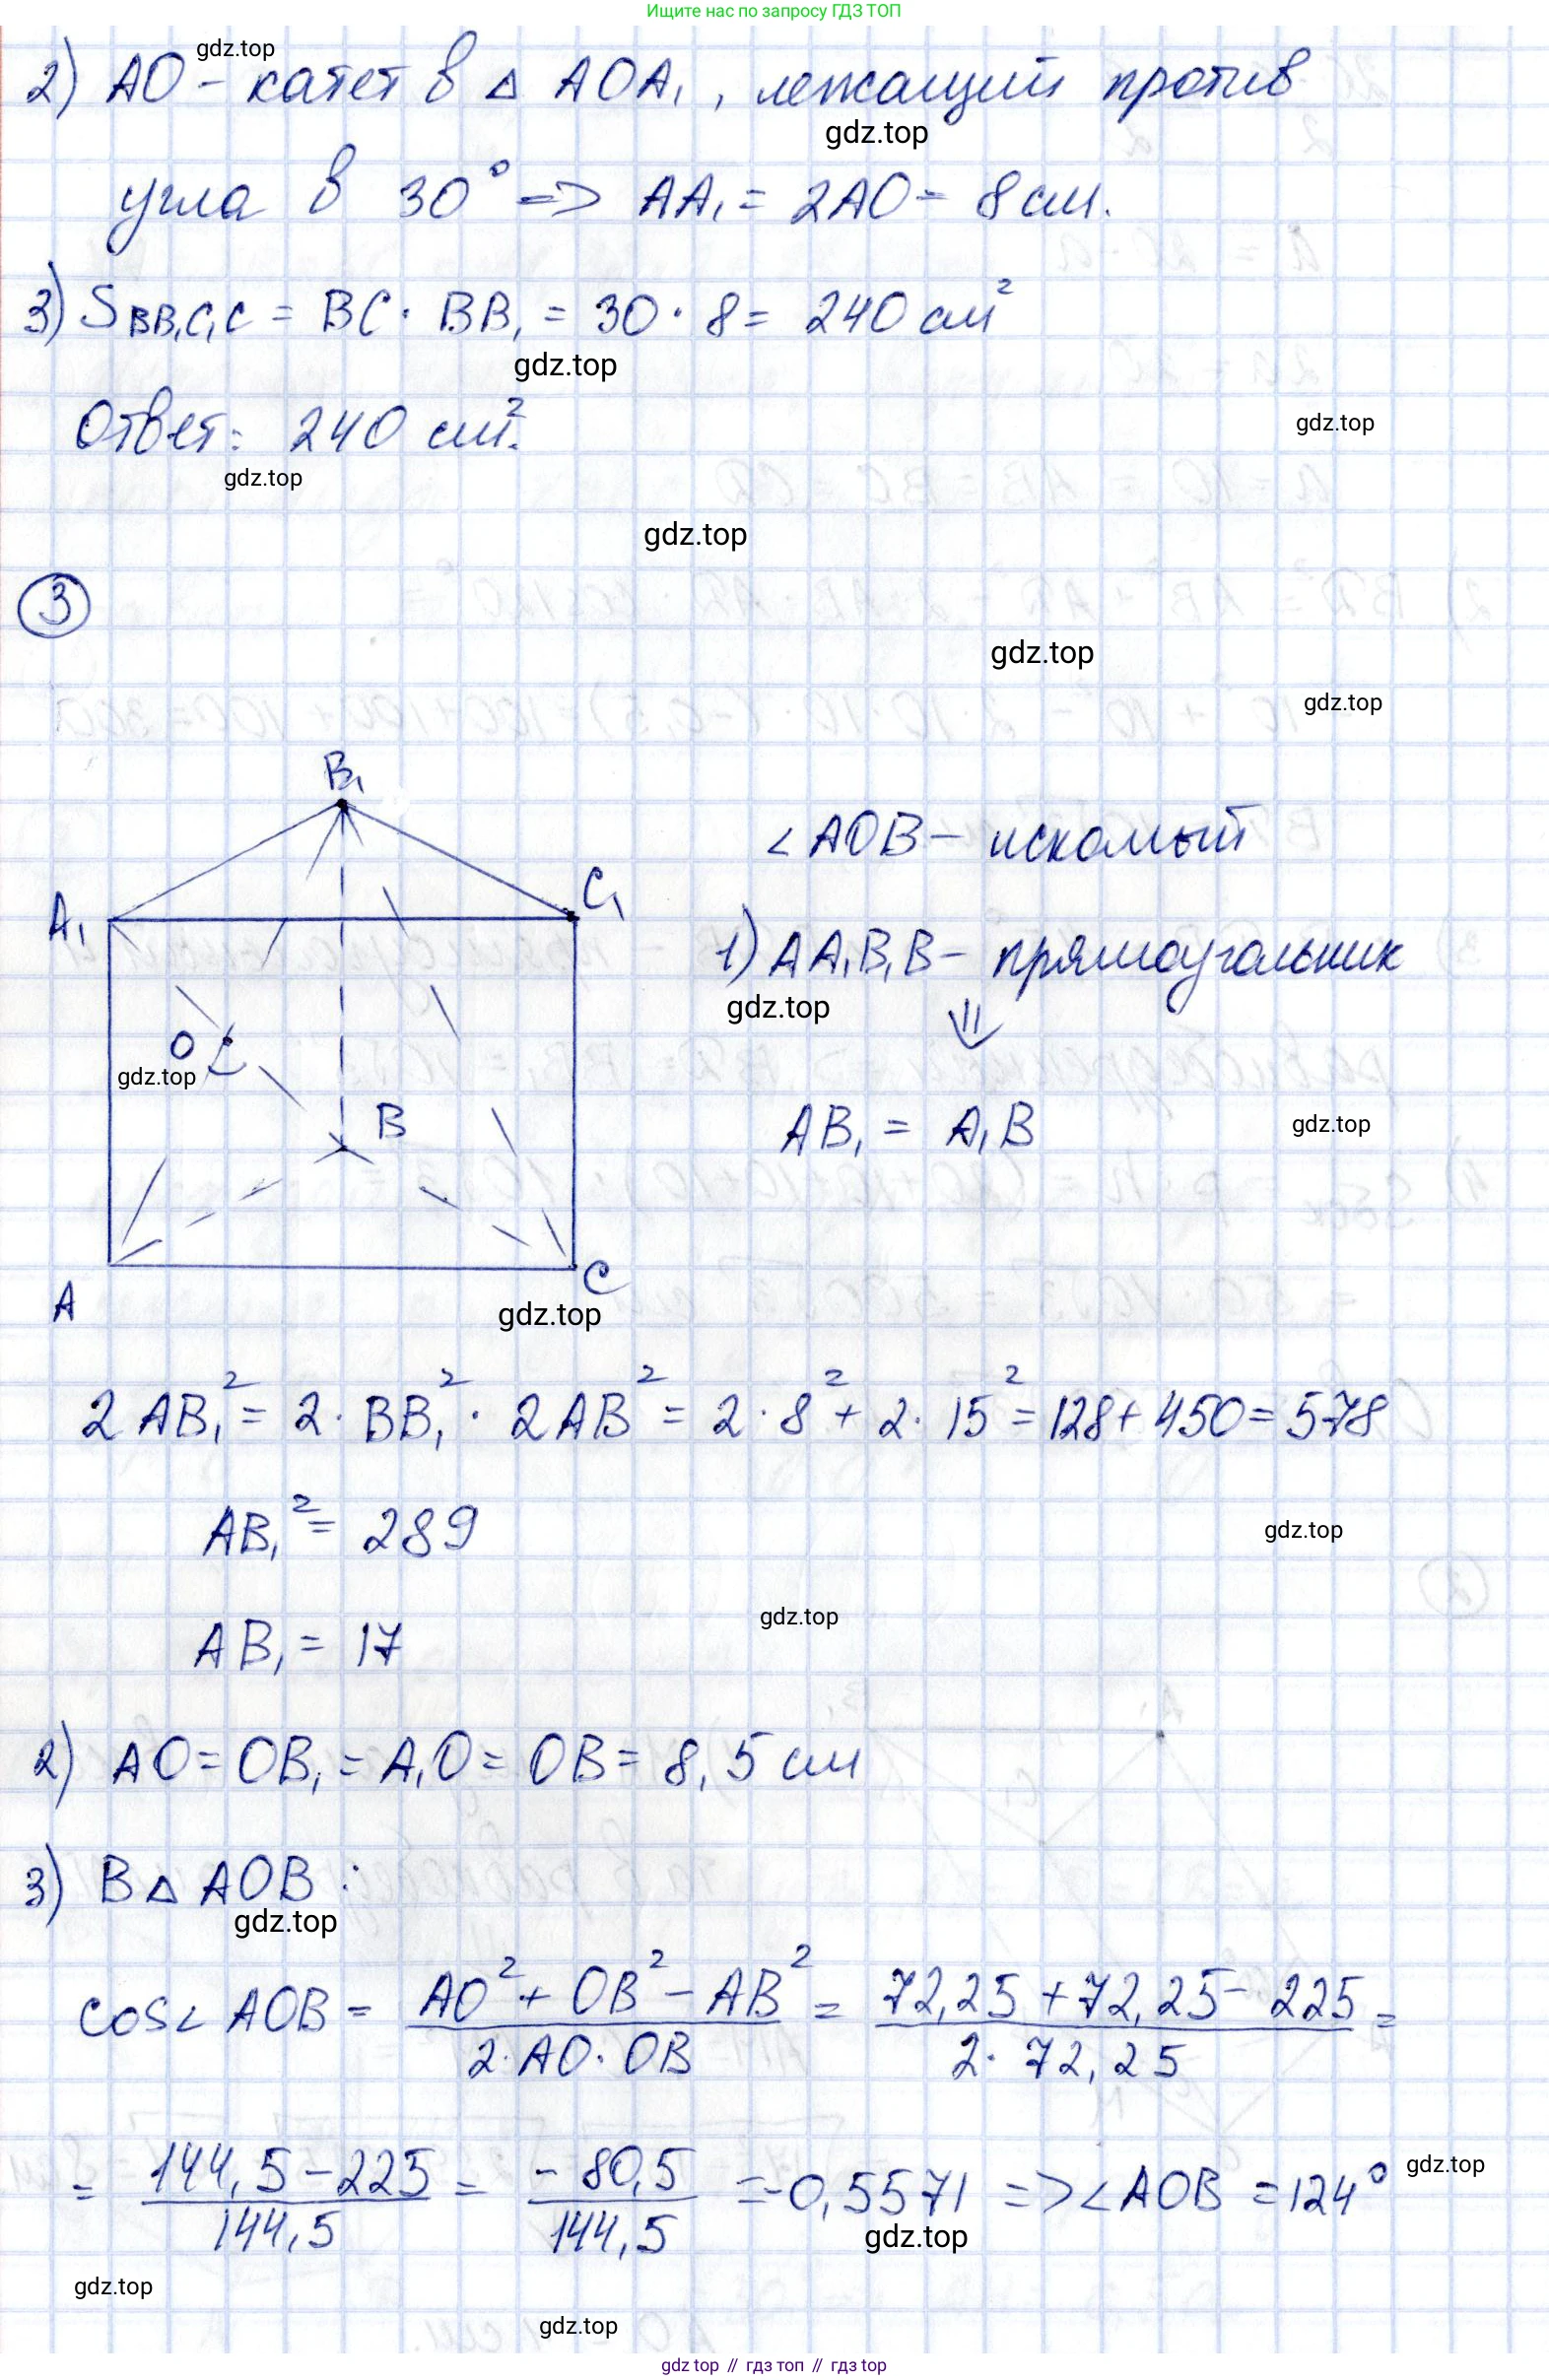 Ищите нас по запросу ГДЗ ТОП
gdz.top
2) AO - катет в △ AOA₁, лежащий против
gdz.top
угла в 30° => AA₁ = 2AO = 8 см.
3) S_BB₁C₁C = BC · BB₁ = 30 · 8 = 240 см²
gdz.top
Ответ: 240 см².
gdz.top
gdz.top
gdz.top
3
gdz.top
gdz.top
B₁
∠AOB - искомый
A₁
C₁
1) AA₁B₁B - прямоугольник
gdz.top
⇓
O
gdz.top
B
AB₁ = A₁B
gdz.top
A
C
gdz.top
2AB₁² = 2 · BB₁² · 2AB² = 2 · 8² + 2 · 15² = 128 + 450 = 578
AB₁² = 289
gdz.top
AB₁ = 17
gdz.top
2) AO = OB₁ = A₁O = OB = 8,5 см
3) В △ AOB :
gdz.top
cos∠AOB = (AO² + OB² - AB²)/(2·AO·OB) = (72,25 + 72,25 - 225)/(2 · 72,25) =
= (144,5 - 225)/144,5 = (-80,5)/144,5 = -0,5571 => ∠AOB = 124°
gdz.top
gdz.top
gdz.top
gdz.top
gdz top // гдз топ // гдз top